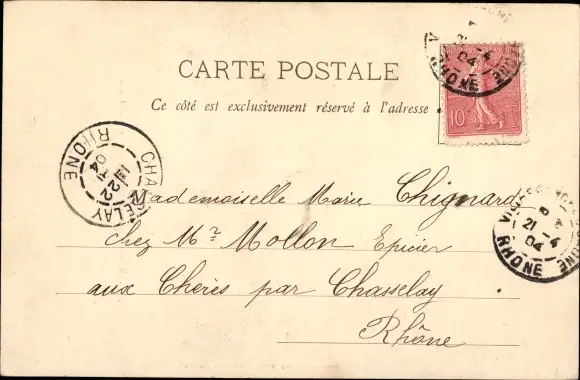 CARTE POSTALE
Ce côté est exclusivement réservé à l'adresse
10
RHÔNE
21 -4
04
CHASSELAY
22
04
RHÔNE
Mademoiselle Marie Chignard
chez Mr Mollon Epicier
aux Chères par Chasselay
Rhône
21 -4
04
RHÔNE